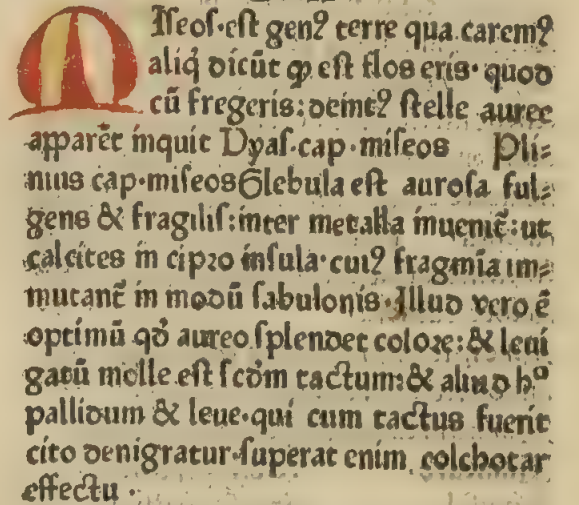 MIſeos·eſt genꝰ terre qua caremꝰ
aliq̇ dicūt ꝙ eſt flos eris· quod
cū fregeris: deintꝰ ſtelle auree
apparēt inquit Dyaſ.cap·miſeos Pli⸗
nius cap·miſeos Glebula eſt auroſa ful⸗
gens & fragiliſ: inter metalla inuenit̄: ut
calcites in cipꝛo inſula· cuiꝰ fragmīa im⸗
mutant̄ in modū ſabulonis· Illud vero ē
optimū qd̓ aureo ſplendet coloꝛe: & leui
gatū molle eſt ſcd̓m tactum: & aliud hᵃ
pallidum & leue· qui cum tactus fuerit
cito denigratur· ſuperat enim colchotar
effectu ·